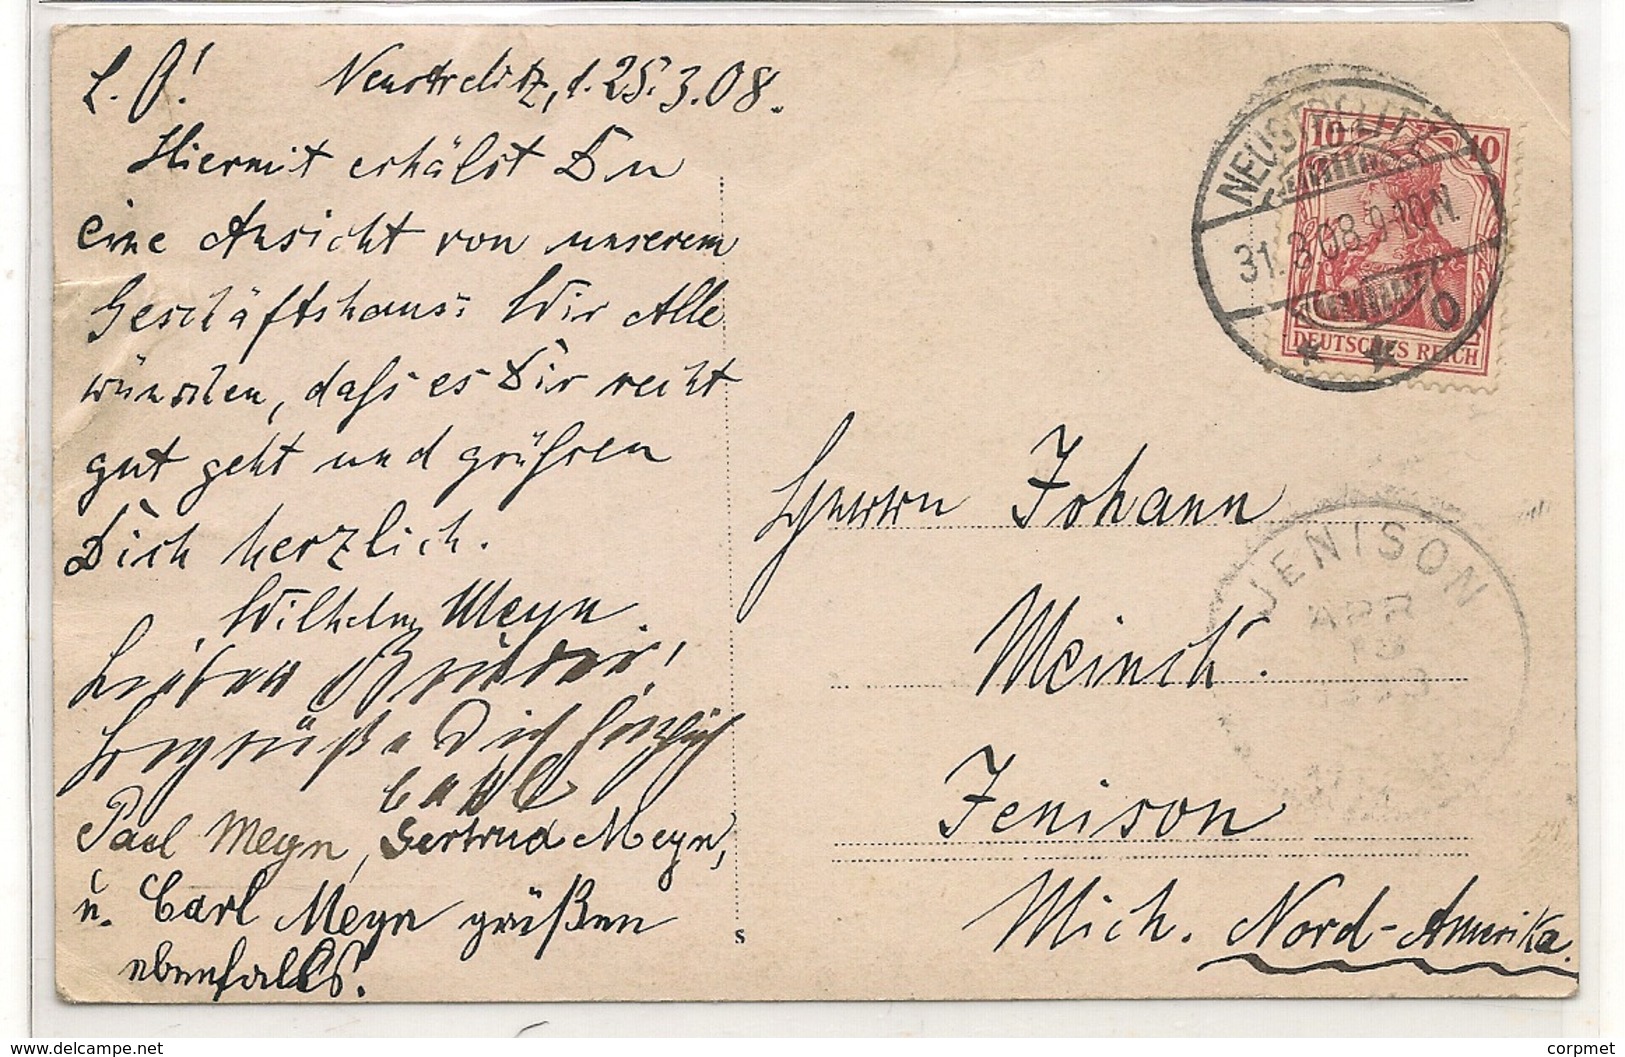 L. O! Neustrelitz, d. 25.3.08.
Hiermit erhälst Du
eine Ansicht von unserem
Geschäftshaus: Wir Alle
wünschen, dass es Dir recht
gut geht und grüßen
Dich herzlich.
Wilhelm Meyn.
Lieben Bruder!
Begrüße Dich herzlich
Carl
Paul Meyn, Gertrud Meyn,
u. Carl Meyn grüßen
ebenfalls.
s
NEUSTRELITZ
31.3.08.9-10N.
10 10
DEUTSCHES REICH
Herrn Johann
Meinch.
Jenison
Mich. Nord-Amerika.
JENISON
APR
13
delcampe.net
corpmet